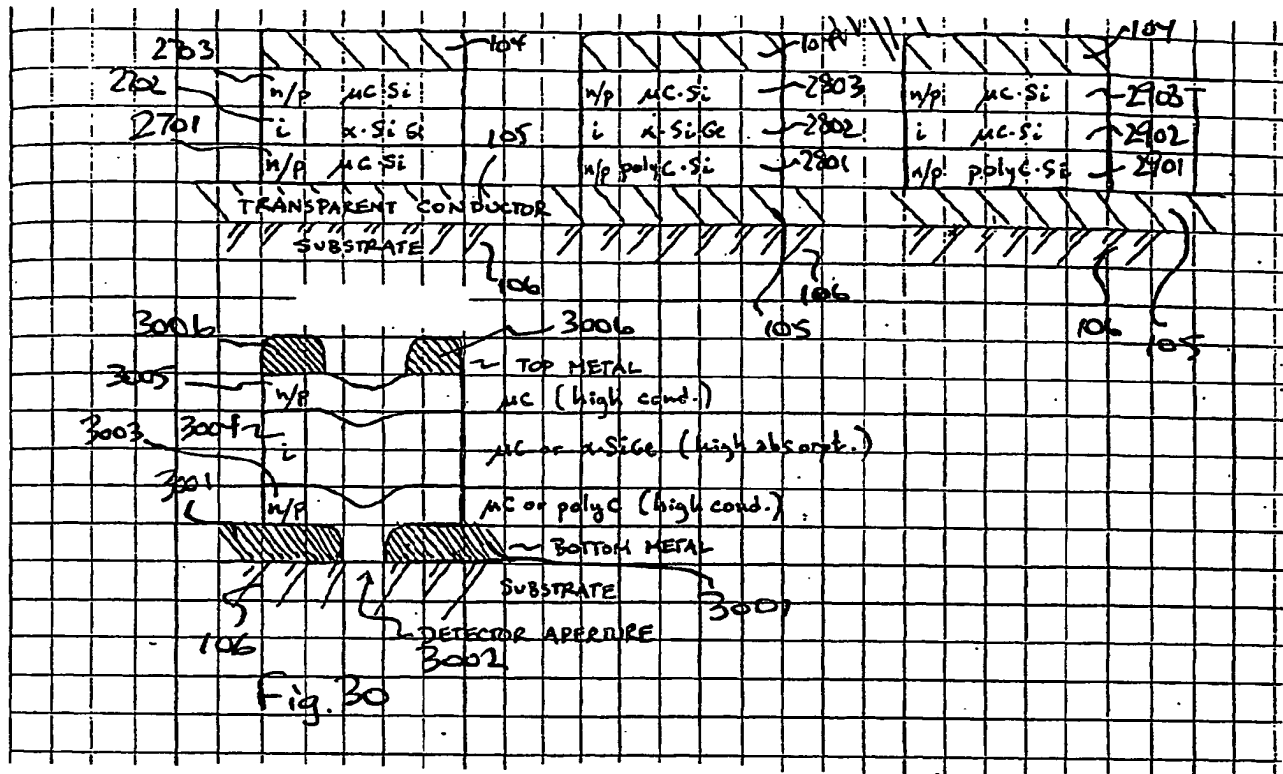 2703 104 104 104
2702 n/p µC-Si n/p µC-Si 2803 n/p µC-Si 2903
2701 i α-SiGe 105 i α-SiGe 2802 i µC-Si 2902
n/p µC-Si n/p polyC-Si 2801 n/p polyC-Si 2901
TRANSPARENT CONDUCTOR
SUBSTRATE
106 106
105 106 105
3006 3006
TOP METAL
3005 n/p µC (high cond.)
3003 3004 i µC or α-SiGe (high absorpt.)
3001
n/p µC or polyC (high cond.)
BOTTOM METAL
SUBSTRATE 3001
106 DETECTOR APERTURE
3002
Fig. 30